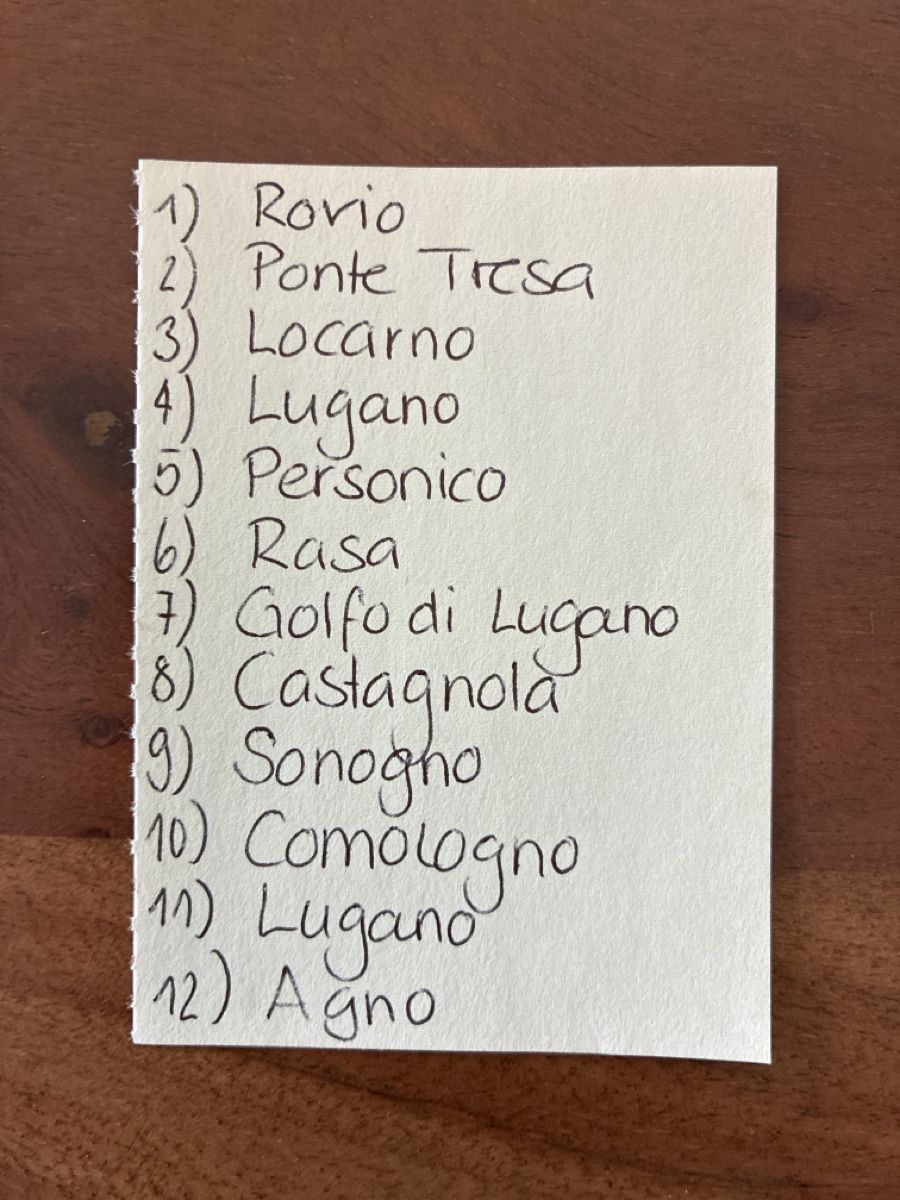 1) Rovio
2) Ponte Tresa
3) Locarno
4) Lugano
5) Personico
6) Rasa
7) Golfo di Lugano
8) Castagnola
9) Sonogno
10) Comologno
11) Lugano
12) Agno